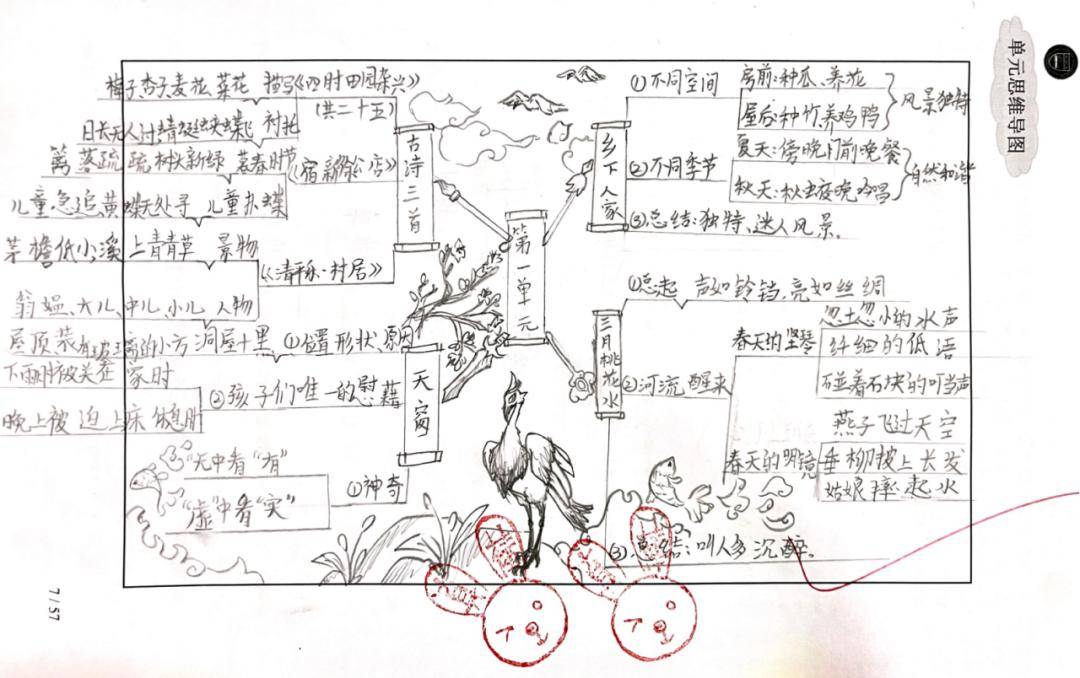 单元思维导图
第一单元
古诗三首
梅子杏子麦花、菜花 描写《四时田园杂兴》
(共二十五)
日长无人过 蜻蜓蛱蝶飞 衬托
篱落疏疏 树头新绿 暮春时节
《宿新市徐公店》
儿童急追黄蝶无处寻 儿童扑蝶
茅檐低小,溪上青青草 景物
《清平乐·村居》
翁媪、大儿、中儿、小儿 人物
天窗
屋顶装有玻璃的小方洞 屋十黑 ①位置 形状 原因
下雨时被关在家时
②孩子们唯一的慰藉
晚上被迫上床休息时
"无中看"有"
"虚"中看"实"
①神奇
乡下人家
①不同空间
房前:种瓜、养花
屋后:种竹养鸡鸭
风景独特
②不同季节
夏天:傍晚门前晚餐
秋天:秋虫夜晚吟唱
自然和谐
③总结:独特、迷人风景。
三月桃花水
①总起 声如铃铛,亮如丝绸
②河流醒来
春天的竖琴
忽大忽小的水声
纤细的低语
碰着石块的叮当声
春天的明镜
燕子飞过天空
垂柳披上长发
姑娘 起水
③总结:叫人多沉醉。
7/57